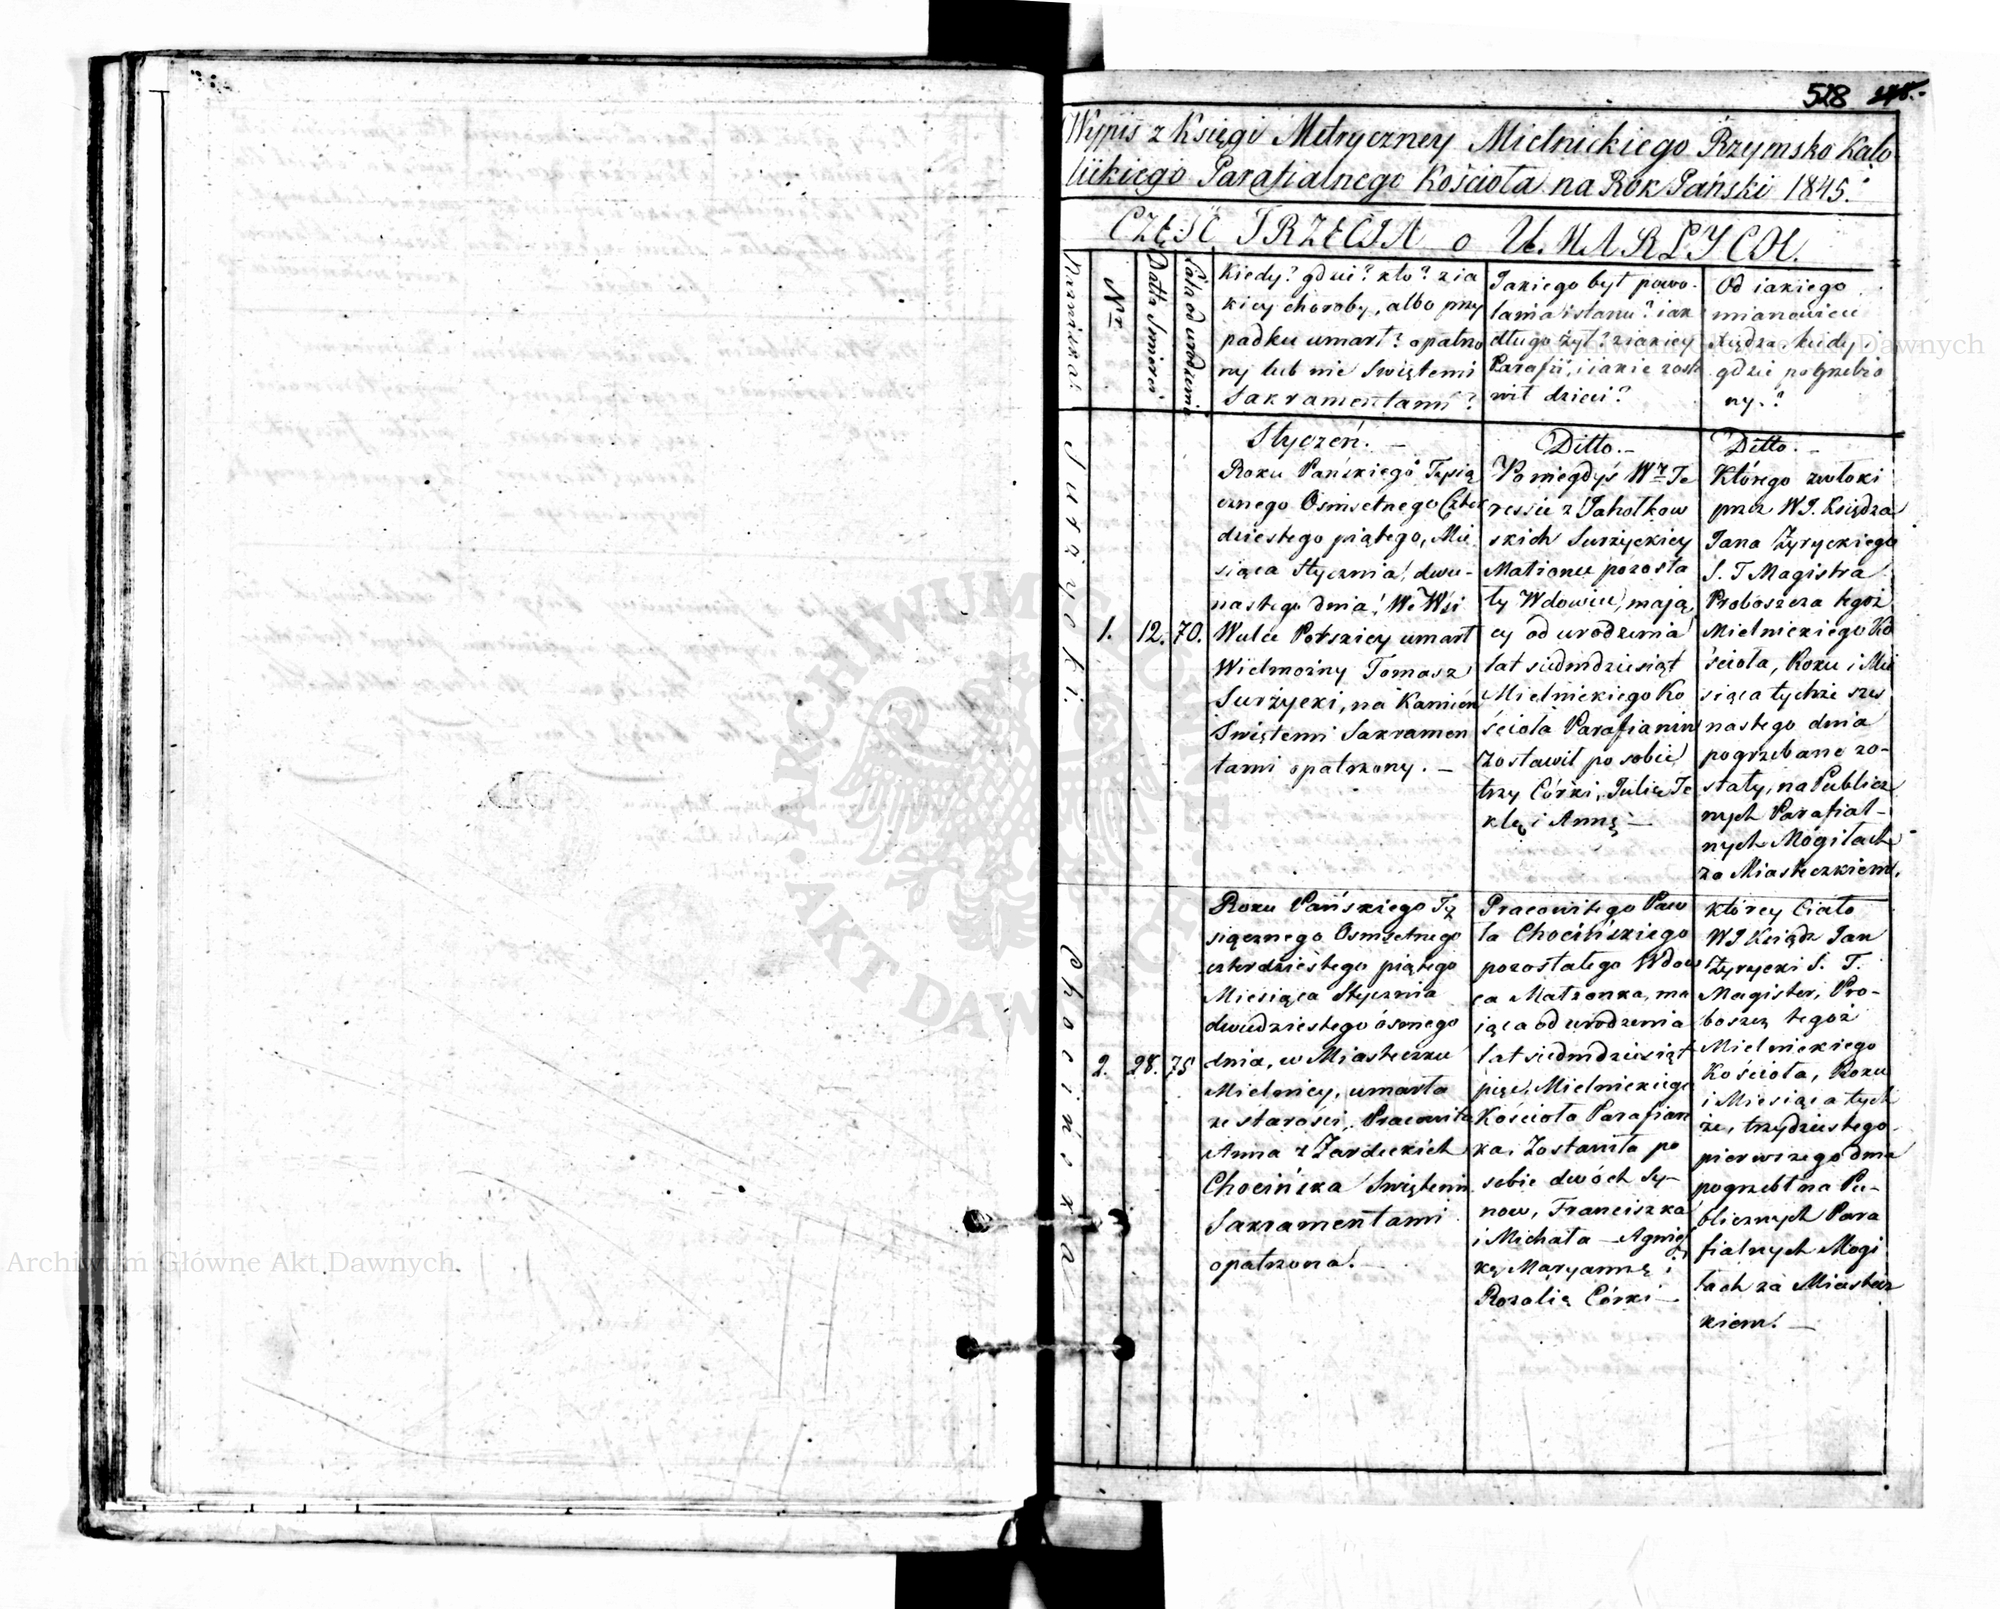 528
Wypis z Księgi Metryczney Mielnickiego Rzymsko Kato
lickiego Parafialnego Kościoła na Rok Pański 1845.
CZĘŚĆ TRZECIA o UMARŁYCH.
Nazwiska
Nr
Datta Śmierci
Lata od urodzenia
Kiedy? gdzie? kto? z ia
kiey choroby, albo przy
padku umarł? opatrzo
ny lub nie Swiętemi
Sakramentami?
Jakiego był powo-
łania i stanu? iak
długo żył? z iakiey
Parafii, i iakie zosta
wił dzieci?
Od iakiego
mianowicie
Xiędza kiedy i
gdzie pogrzebio
ny.?
Surżycki.
1.
12.
70.
Styczeń. —
Roku Pańskiego Tysią
cznego Osmsetnego Czter
dziestego piątego, Mie
siąca Stycznia, dwu-
nastego dnia! We Wsi
Wulce Polskiey umarł
Wielmożny Tomasz
Surżycki, na Kamień
Swiętemi Sakramen
tami opatrzony. —
Ditto. —
Po niegdyś Wej Te
ressie z Jahołkow
skich Surżyckiey
Małżonce pozosta
ły Wdowiec, mają
cy od urodzenia
lat siedmdziesiąt
Mielnickiego Ko
ścioła Parafianin
Zostawił po sobie
trzy Córki, Julię Te
klę i Annę —
Ditto. —
Którego zwłoki
przez WJ. Księdza
Jana Żyryckiego
S. T Magistra
Proboszcza tegoż
Mielnickiego Ko
ścioła, Roku i Mie
siąca tychże szes
nastego dnia
pogrzebane zo-
stały, na Publicz
nych Parafial-
nych Mogiłach
za Miasteczkiem.
Chocińska —
2.
28.
75
Roku Pańskiego Ty
siącznego Osmsetnego
czterdziestego piątego
Miesiąca Stycznia
dwudziestego ósmego
dnia, w Miasteczku
Mielnicy, umarła
ze starości, Pracowita
Anna z Zardeckich
Chocińska Swiętemi
Sakramentami
opatrzona. —
Pracowitego Paw
ła Chocińskiego
pozostałego Wdow
ca Małżonka, ma
iąca od urodzenia
lat siedmdziesiąt
pięć, Mielnickiego
Kościoła Parafian
ka, Zostawiła po
sobie dwóch Sy-
now, Franciszka
i Michała — Agniesz
kę Maryannę i
Rozalię Córki —
Którey Ciało
WJ Ksiądz Jan
Żyrycki S. T.
Magister, Pro-
boszcz tegoż
Mielnickiego
Kościoła, Roku
i Miesiąca tych
że, trzydziestego
pierwszego dnia
pogrzebł na Pu-
blicznych Para
fialnych Mogi
łach za Miastecz
kiem. —
ARCHIWUM GŁÓWNE AKT DAWNYCH
Archiwum Główne Akt Dawnych
Archiwum Główne Akt Dawnych